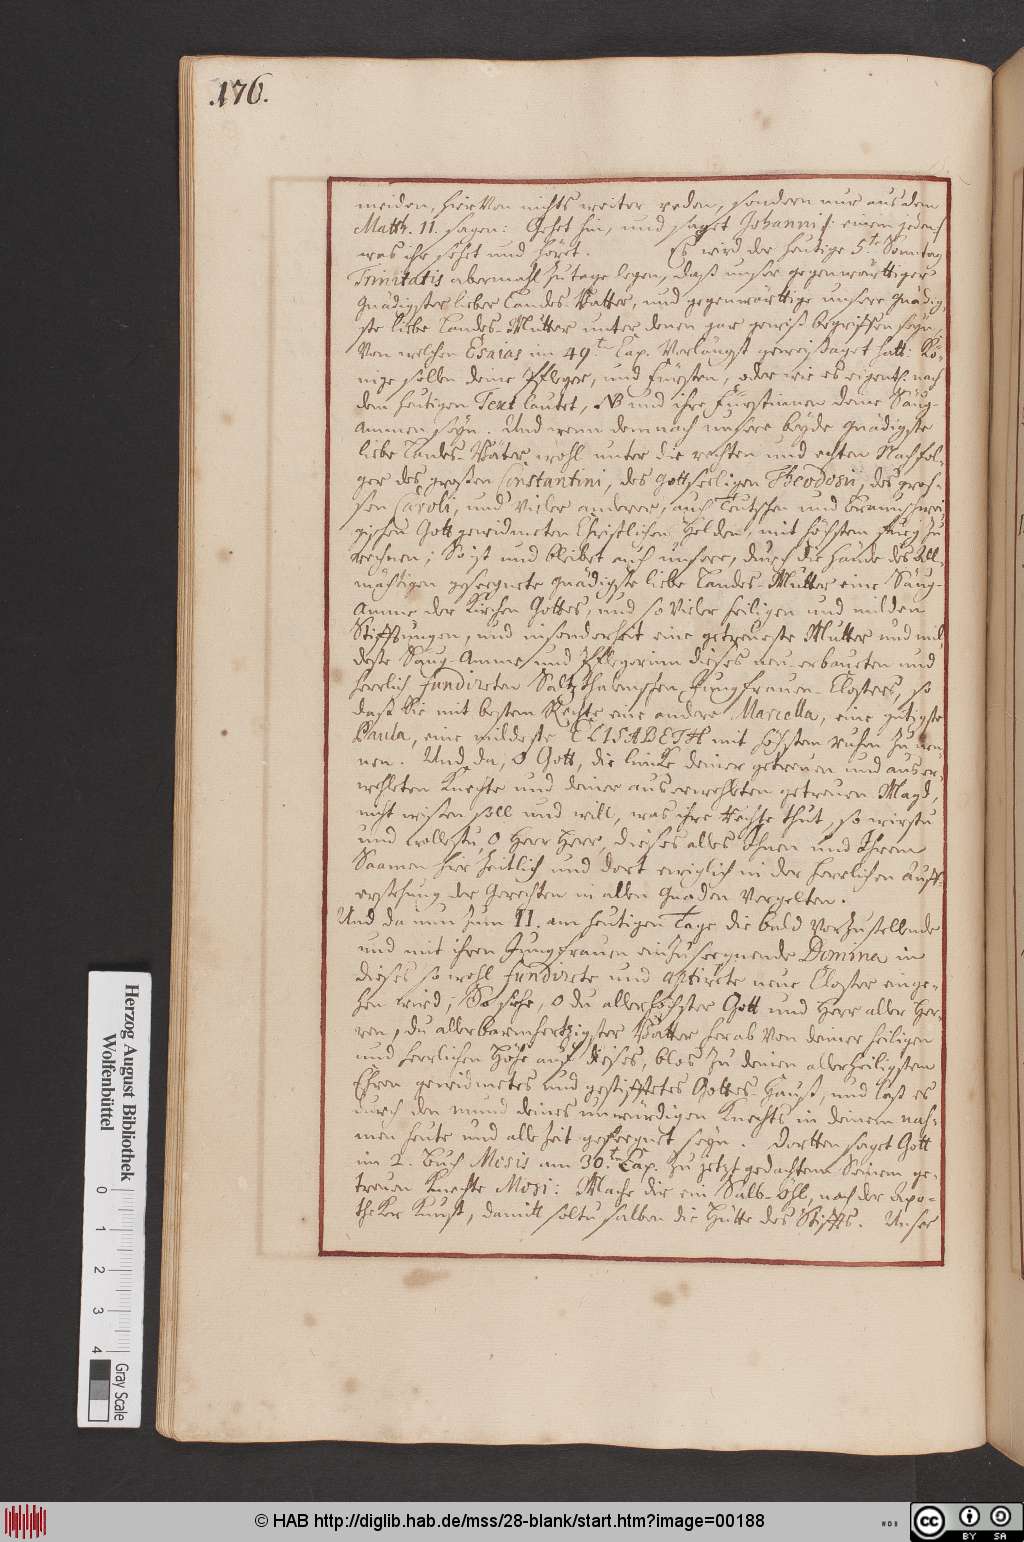 .176.
meiden, hiervon nichts weiter reden, sondern nur aus dem
Matth. 11. sagen: Gehet hin, und saget Johanni /: einem jeden :/
was ihr sehet und höret. Es wird der heutige 5te Sonntag
Trinitatis abermahl zu tage legen, daß unser gegenwärttiger
Gnädigster lieber Landes-Vatter, und gegenwärttige unsere Gnädig-
ste liebe Landes-Mutter unter denen gar gewiß begriffen seyn,
Von welchen Esaias im 49.t Cap. Verlängst geweissaget hatt: Kö-
nige sollen deine Pfleger, und Fürsten, oder wie es eigentl. nach
dem heutigen Text lautet, NB und ihre Fürstinnen deine Säug-
Ammen seyn. Und wenn demnach unsere beyde gnädigste
liebe Landes-Väter wohl unter die rechten und echten Nachfol-
ger des großen Constantini, des Gottseeligen Theodosii, des gros-
sen Caroli, und vieler anderer, auch Teutschen und Braunschwei-
gischen Gott gewidmeten Christlichen Helden, mit höchstem fug zu
rechnen; So ist und bleibet auch unsere, durch die Hände des All-
mächtigen geseegnete gnädigste liebe Landes-Mutter eine Säug-
Amme der Kirchen Gottes, und so vieler heiligen und milden
Stifftungen, und insonderheit eine getreueste Mutter und mil-
deste Säug-Amme und Pflegerinn dieses neu-erbaueten und
herrlich fundireten Saltzthalmschen Jungfrauen-Closters, so
daß Sie mit bestem Rechte eine andere Marcella, eine gütigste
Paula, eine mildeste ELISABETH mit höchstem ruhm zu nen-
nen. Und da, o Gott, die lincke deiner getreuen und auser-
wehleten Knechte und deiner auserwehlten getreuen Magd,
nicht wissen soll und will, was ihre Rechte thut, so wirstu
und wollestu, o Herr Herr, dieses alles Ihnen und Ihrem
Saamen hier zeitlich und dort ewiglich in der herrlichen Auff-
erstehung der Gerechten in allen Gnaden vergelten.
Und da nun zum II. am heutigen Tage die bald vorzustellende
und mit ihren Jungfrauen einzuseegnende Domina in
dieses so wohl fundirete und aptirete neue Closter einge-
hen wird; So siehe, o du allerhöchster Gott und Herr aller Her-
ren, du allerbarmhertzigster Vatter herab von deiner heiligen
und herrlichen Höhe auf dieses, blos zu deinen allerheiligsten
Ehren gewidmetes und gestifftetes Gottes-Hauß, und laß es
durch den mund deines unwürdigen Knechts in deinem nah-
men heute und alle Zeit geseegnet seyn. Dortten saget Gott
im 2. Buch Mosis am 30.ten Cap. zu jetzt gedachtem Seinem ge-
treuen Knechte Mosi: Mache die ein Salb-Öhl, nach der Apo-
theker Kunst, damitt soltu salben die Hütte des Stiffts. Unser
Herzog August Bibliothek
Wolfenbüttel
0 1 2 3 4
Gray Scale
© HAB http://diglib.hab.de/mss/28-blank/start.htm?image=00188
WDB
CC BY SA